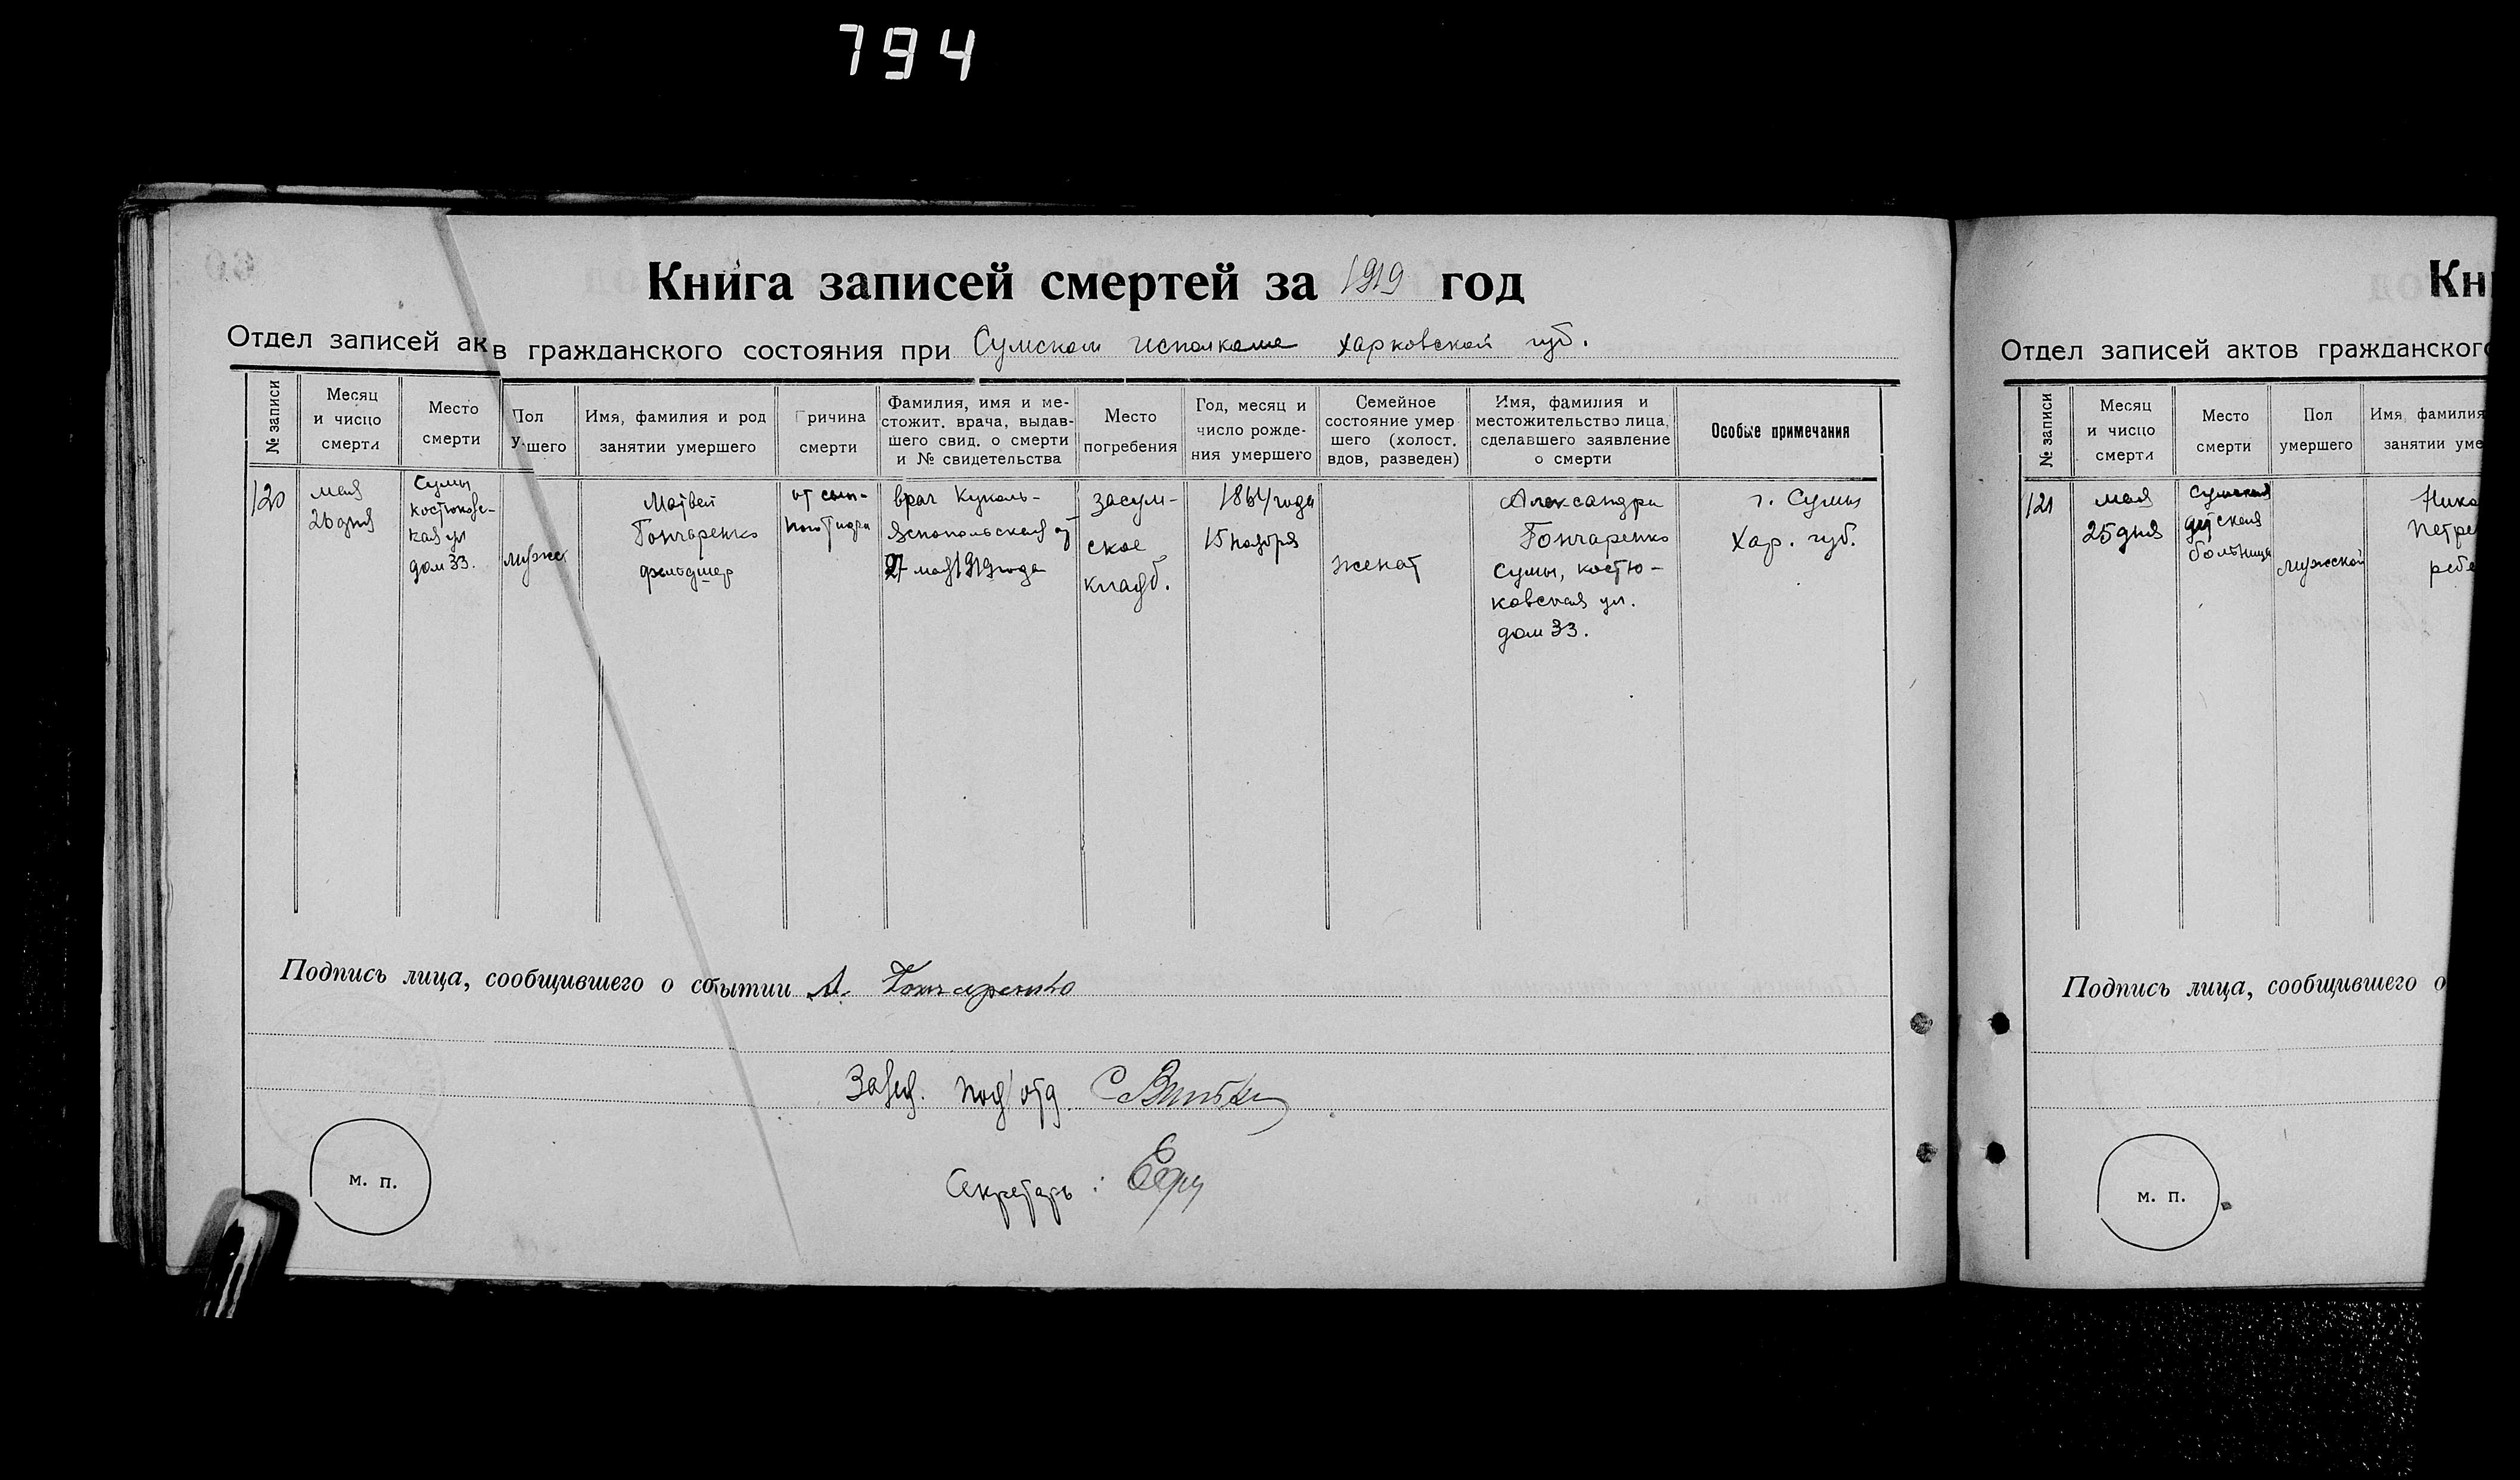 794
Книга записей смертей за 1919 год
Отдел записей ак в гражданского состояния при Сумском исполкоме Харковской губ.
№ записи
Месяц
и число
смерти
Место
смерти
Пол
у шего
Имя, фамилия и род
занятии умершего
Причина
смерти
Фамилия, имя и ме-
стожит. врача, выдав-
шего свид. о смерти
и № свидетельства
Место
погребения
Год, месяц и
число рожде-
ния умершего
Семейное
состояние умер
шего (холост.
вдов, разведен)
Имя, фамилия и
местожительство лица,
сделавшего заявление
о смерти
Особые примечания
120
мая
26 дня
Сумы
Костюковс-
кая ул
дом 33.
мужс.
Матвей
Гончаренко
фельдшер
от сып-
ного тифа
врач Куколь-
Яснопольская от
27 мая 1919 года
засум-
ское
кладб.
1864 года
15 ноября
женат
Александра
Гончаренко
Сумы, костю-
ковская ул.
дом 33.
г. Сумы
Хар. губ.
Подпись лица, сообщившего о событии А. Гончаренко
Завед. подотд.
Секретарь:
м. п.
Кн
Отдел записей актов гражданского
№ записи
Месяц
и число
смерти
Место
смерти
Пол
умершего
Имя, фамилия
занятии уме
121
мая
25 дня
Сумская
детская
больница
мужской
Нико
Петре
ребе
Подпись лица, сообщившего о
м. п.